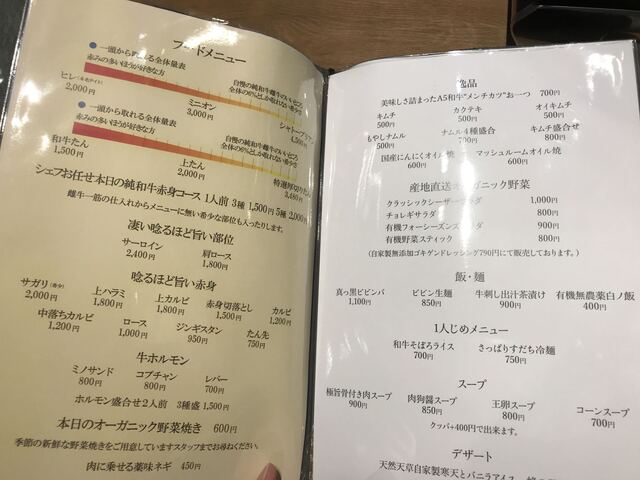 フードメニュー
●一頭から取れる全体量表
赤みの多いほうが好きな方
自慢の純和牛雌牛のいいどころ
ヒレ
2,000円
ミニオン
3,000円
シャトーブリアン
●一頭から取れる全体量表
赤みの多いほうが好きな方
自慢の純和牛雌牛のいいどころ
和牛たん
1,500円
上たん
2,000円
特選厚切りたん
3,480円
シェフお任せ本日の純和牛赤身コース 1人前 3種 1,500円 5種 2,000円
雌牛一筋の仕入れからメニューに無い希少な部位も入ったりします。
凄い唸るほど旨い部位
サーロイン 肩ロース
2,400円 1,800円
唸るほど旨い赤身
サガリ(希少) 上ハラミ 上カルビ 赤身切落とし カルビ
2,000円 1,800円 1,800円 1,500円 1,200円
中落ちカルビ ロース ジンギスカン たん先
1,200円 1,000円 950円 750円
牛ホルモン
ミノサンド コプチャン レバー
800円 800円 700円
ホルモン盛合せ2人前 3種盛 1,500円
本日のオーガニック野菜焼き 600円
季節の新鮮な野菜焼きをご用意していますスタッフまでお尋ねください。
肉に乗せる薬味ネギ 450円
逸品
美味しさ詰まったA5和牛"メンチカツ"お一つ 700円
キムチ カクテキ オイキムチ
500円 500円 500円
もやしナムル ナムル4種盛合 キムチ盛合せ
500円 700円 800円
国産にんにくオイル焼 マッシュルームオイル焼
600円 600円
産地直送オーガニック野菜
クラッシックシーザーサラダ 1,000円
チョレギサラダ 800円
有機フォーシーズンズサラダ 900円
有機野菜スティック 800円
(自家製無添加ゴキゲンドレッシング790円にて販売しております。)
飯・麺
真っ黒ビビンバ ビビン生麺 牛刺し出汁茶漬け 有機無農薬白ノ飯
1,100円 850円 900円 400円
1人じめメニュー
和牛そぼろライス さっぱりすだち冷麺
700円 750円
スープ
極旨骨付き肉スープ 肉狗醤スープ 王卵スープ コーンスープ
900円 850円 800円 700円
クッパ+400円で出来ます。
デザート
天然天草自家製寒天とバニラアイス